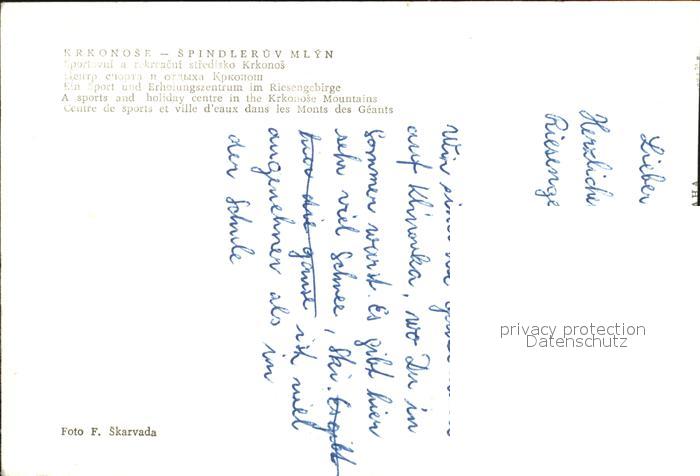 KRKONOŠE — ŠPINDLERŮV MLÝN
Sportovní a rekreační středisko Krkonoš
Центр спорта и отдыха Крконош
Ein Sport und Erholungszentrum im Riesengebirge
A sports and holiday centre in the Krkonoše Mountains
Centre de sports et ville d'eaux dans les Monts des Géants
Lieber
Herzliche
Riesenge
Wir sind
auf Klinovka, wo Du in
Sommer warst. Es gibt hier
sehr viel Schnee, Ski. Es gibt
hier die ganse ist viel
angenehner als im
der Schule
privacy protection
Datenschutz
Foto F. Škarvada